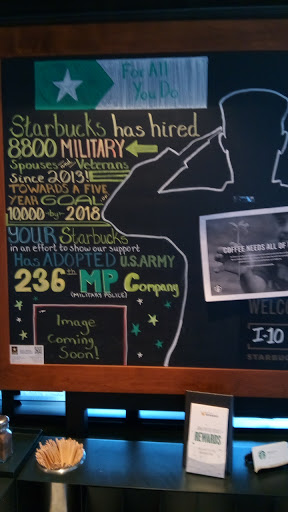 For All
You Do
Starbucks has hired
8800 MILITARY
Spouses and Veterans
Since 2013!
TOWARDS A FIVE
YEAR GOAL of
10000 -by- 2018
YOUR Starbucks
in an effort to show our support
Has ADOPTED U.S. ARMY
236th MP Company
(MILITARY POLICE)
Image
Coming
Soon!
COFFEE NEEDS ALL OF
WELCO
I-10
STARBUCK
REWARDS